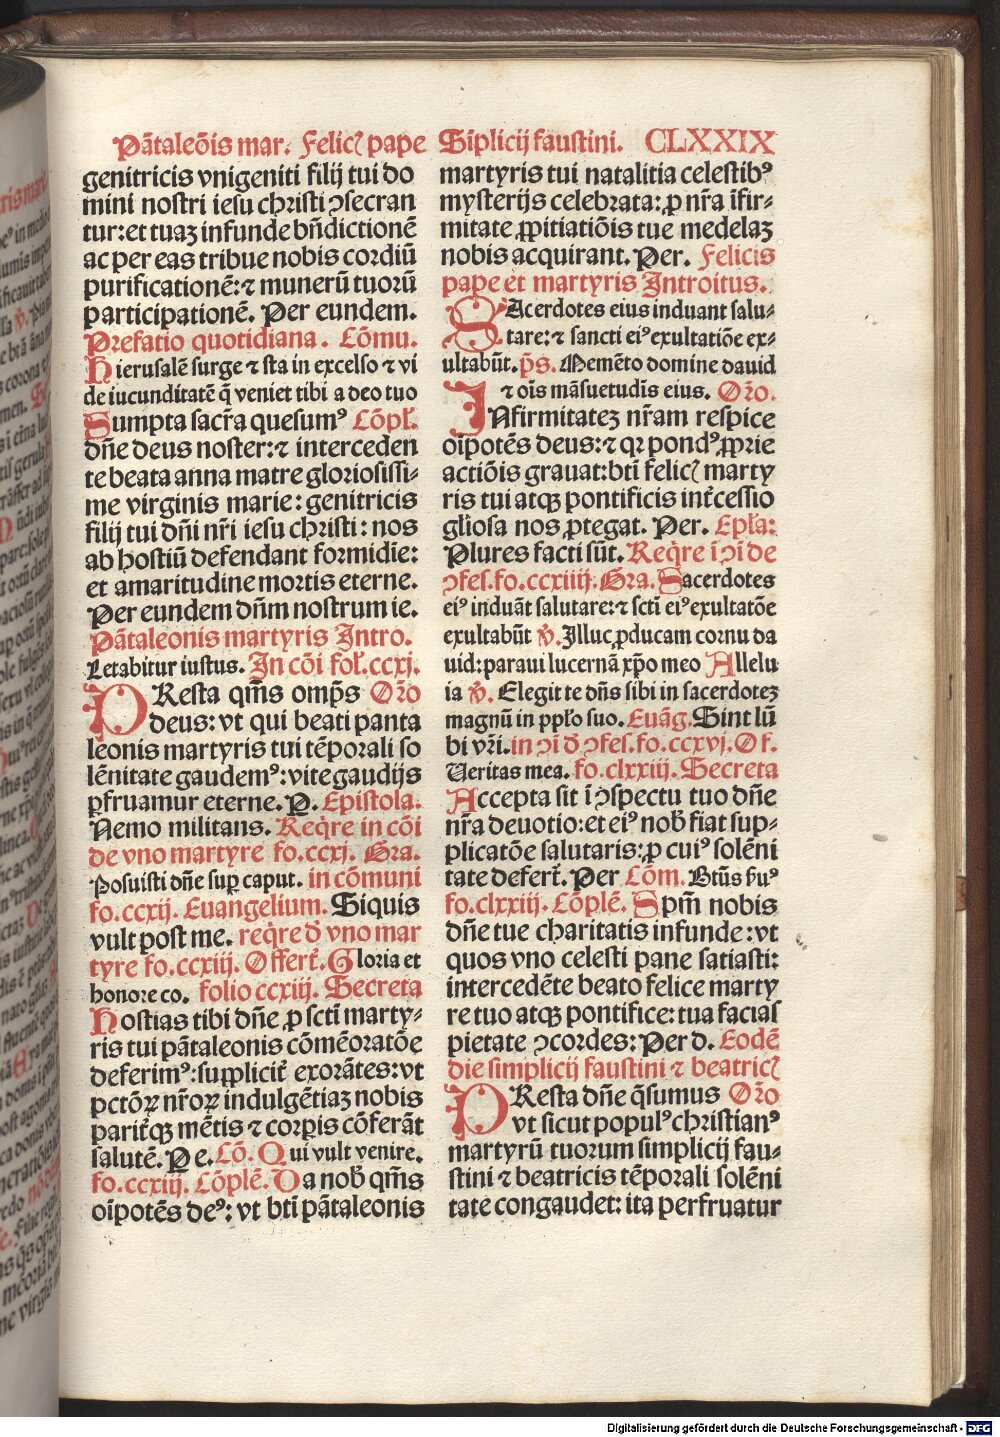 Pãtaleõis mar. Felicꝭ pape Siplicij faustini. CLXXIX
genitricis vnigeniti filij tui do
mini nostri iesu christi ↄsecran
tur: et tuaz infunde bñdictionẽ
ac per eas tribue nobis cordiũ
purificationẽ: ⁊ munerũ tuorũ
participationẽ. Per eundem.
Prefatio quotidiana. Cõmu.
Hierusalẽ surge ⁊ sta in excelso ⁊ vi
de iucunditatẽ q̃ veniet tibi a deo tuo
Sumpta sacr̃a quesumꝰ Cõpł.
dñe deus noster: ⁊ interceden
te beata anna matre gloriosissi-
me virginis marie: genitricis
filij tui dñi nr̃i iesu christi: nos
ab hostiũ defendant formidĩe:
et amaritudine mortis eterne.
Per eundem dñm nostrum ie.
Pãtaleonis martyris Intro.
Letabitur iustus. In cõi foł. ccxj.
PResta qm̃s omp̃s Or̃o
deus: vt qui beati panta
leonis martyris tui tẽporali so
lẽnitate gaudemꝰ: vite gaudijs
ꝑfruamur eterne. P. Epistola.
Nemo militans. Reqr̃e in cõi
de vno martyre fo. ccxj. Gra.
Posuisti dñe suꝑ caput. in cõmuni
fo. ccxij. Euangelium. Siquis
vult post me. reqr̃e đ vno mar
tyre fo. ccxiij. Offert̃. Gloria et
honore co. folio ccxiij. Secreta
Hostias tibi dñe ꝓ scti̇ marty-
ris tui pãtaleonis cõmẽoratõe
deferimꝰ: supplicit̃ exorãtes: vt
pctõꝝ nr̃oꝝ indulgẽtiaz nobis
parit̃qꝫ mẽtis ⁊ corꝑis cõferãt
salutẽ. Pe. Cõ. Qui vult venire.
fo. ccxiij. Cõplẽ. Da nob̃ qm̃s
oĩpotẽs deꝰ: vt bti̇ pãtaleonis
martyris tui natalitia celestibꝰ
mysterijs celebrata: ꝓ nr̃a ĩfir-
mitate ꝓpitiatiõis tue medelaz
nobis acquirant. Per. Felicis
pape et martyris Introitus.
SAcerdotes eius induant salu-
tare: ⁊ sancti eiꝰ exultatiõe ex-
ultabũt. p̃s. Memẽto domine dauid
⁊ oĩs mãsuetudĩs eius. Or̃o.
INfirmitatez nr̃am respice
oĩpotẽs deus: ⁊ qꝛ pondꝰ ꝓprie
actiõis grauat: bti̇ felicꝭ marty
ris tui atqꝫ pontificis int̃cessio
gł̃iosa nos ꝓtegat. Per. Epł̃a:
Plures facti sũt. Reqr̃e ĩ ↄĩ de
ↄfes. fo. ccxiiij. Gra. Sacerdotes
eiꝰ induãt salutare: ⁊ scti̇ eiꝰ exultatõe
exultabũt ꝟ. Illuc ꝓducam cornu da
uid: paraui lucernã xp̃o meo Allelu
ia ꝟ. Elegit te dñs sibi in sacerdotez
magnũ in ppł̃o suo. Euãg. Sint lũ
bi vr̃i. in ↄĩ đ ↄfes. fo. ccxvj. Of.
Veritas mea. fo. clxxiij. Secreta
Accepta sit ĩ ↄspectu tuo dñe
nr̃a deuotio: et eiꝰ nob̃ fiat sup-
plicatõe salutaris: ꝓ cuiꝰ solẽni
tate defert̃. Per Cõm. Btũs ßuꝰ
fo. clxxiij. Cõplẽ. Sp̃m nobis
dñe tue charitatis infunde: vt
quos vno celesti pane satiasti:
intercedẽte beato felice marty
re tuo atqꝫ pontifice: tua facias
pietate ↄcordes: Per d. Eodẽ
die simplicij faustini ⁊ beatricꝭ
PResta dñe q̃sumus Or̃o
vt sicut populꝰ christianꝰ
martyrũ tuorum simplicij fau-
stini ⁊ beatricis tẽporali solẽni
tate congaudet: ita perfruatur
Digitalisierung gefördert durch die Deutsche Forschungsgemeinschaft - DFG